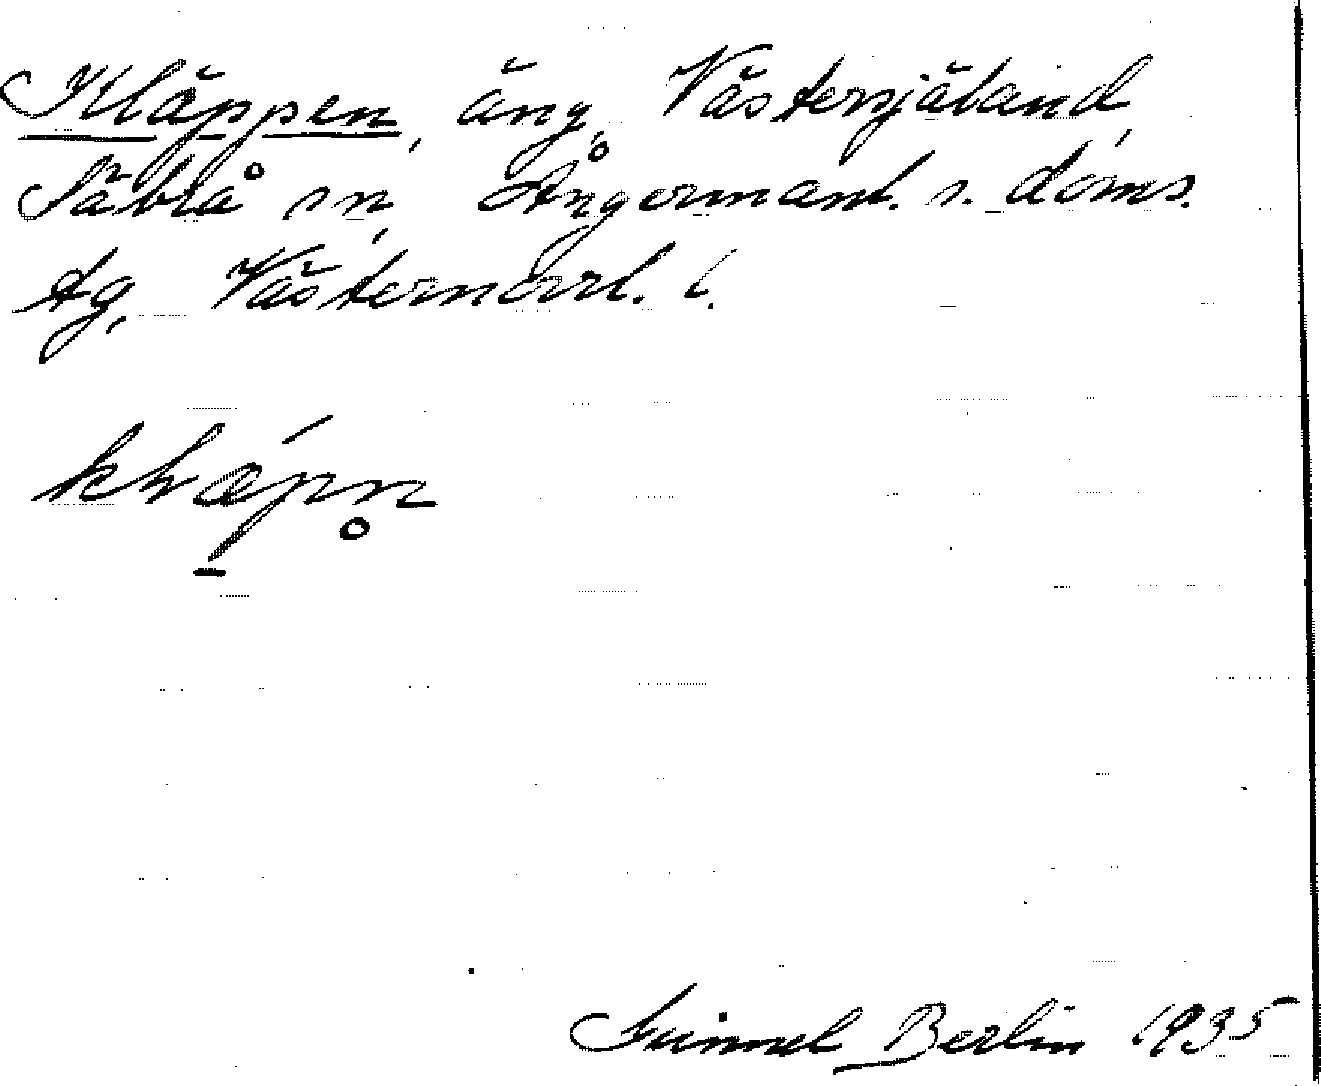 Kläppen, äng, Västersjäland,
Säbrå sn, Ångermanl. s. doms.
tg, Västernorrl. l.
klæpn̥
Gunnel Berlin 1935